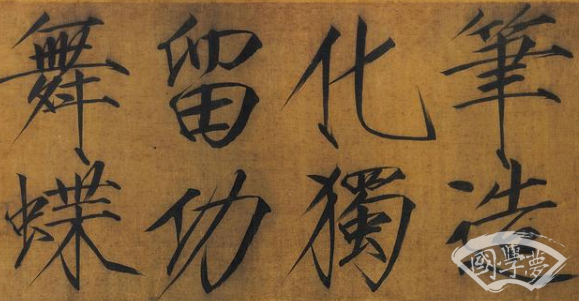 筆造
化獨
留功
舞蝶
國學夢